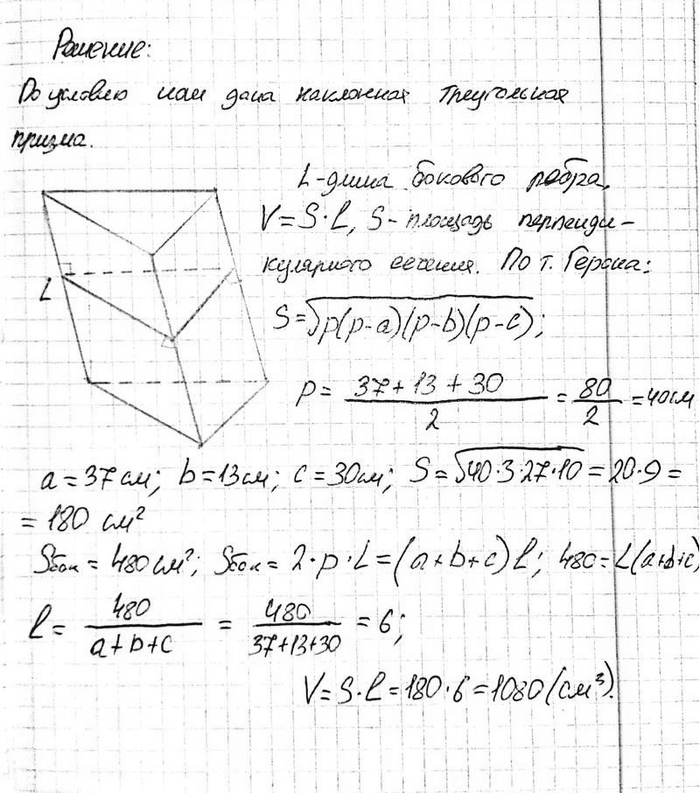 Решение:
По условию нам дана наклонная треугольная
призма.
L-длина бокового ребра,
V=S·l, S-площадь перпенди-
кулярного сечения. По т. Герона:
L
S=√p(p-a)(p-b)(p-c);
p = (37+13+30)/2 = 80/2 = 40см
a=37см; b=13см; c=30см; S=√40·3·27·10 = 20·9 =
= 180 см²
Sбок = 480см²; Sбок = 2·p·L=(a+b+c)l; 480=L(a+b+c)
l = 480/(a+b+c) = 480/(37+13+30) = 6;
V=S·l=180·6=1080(см³).